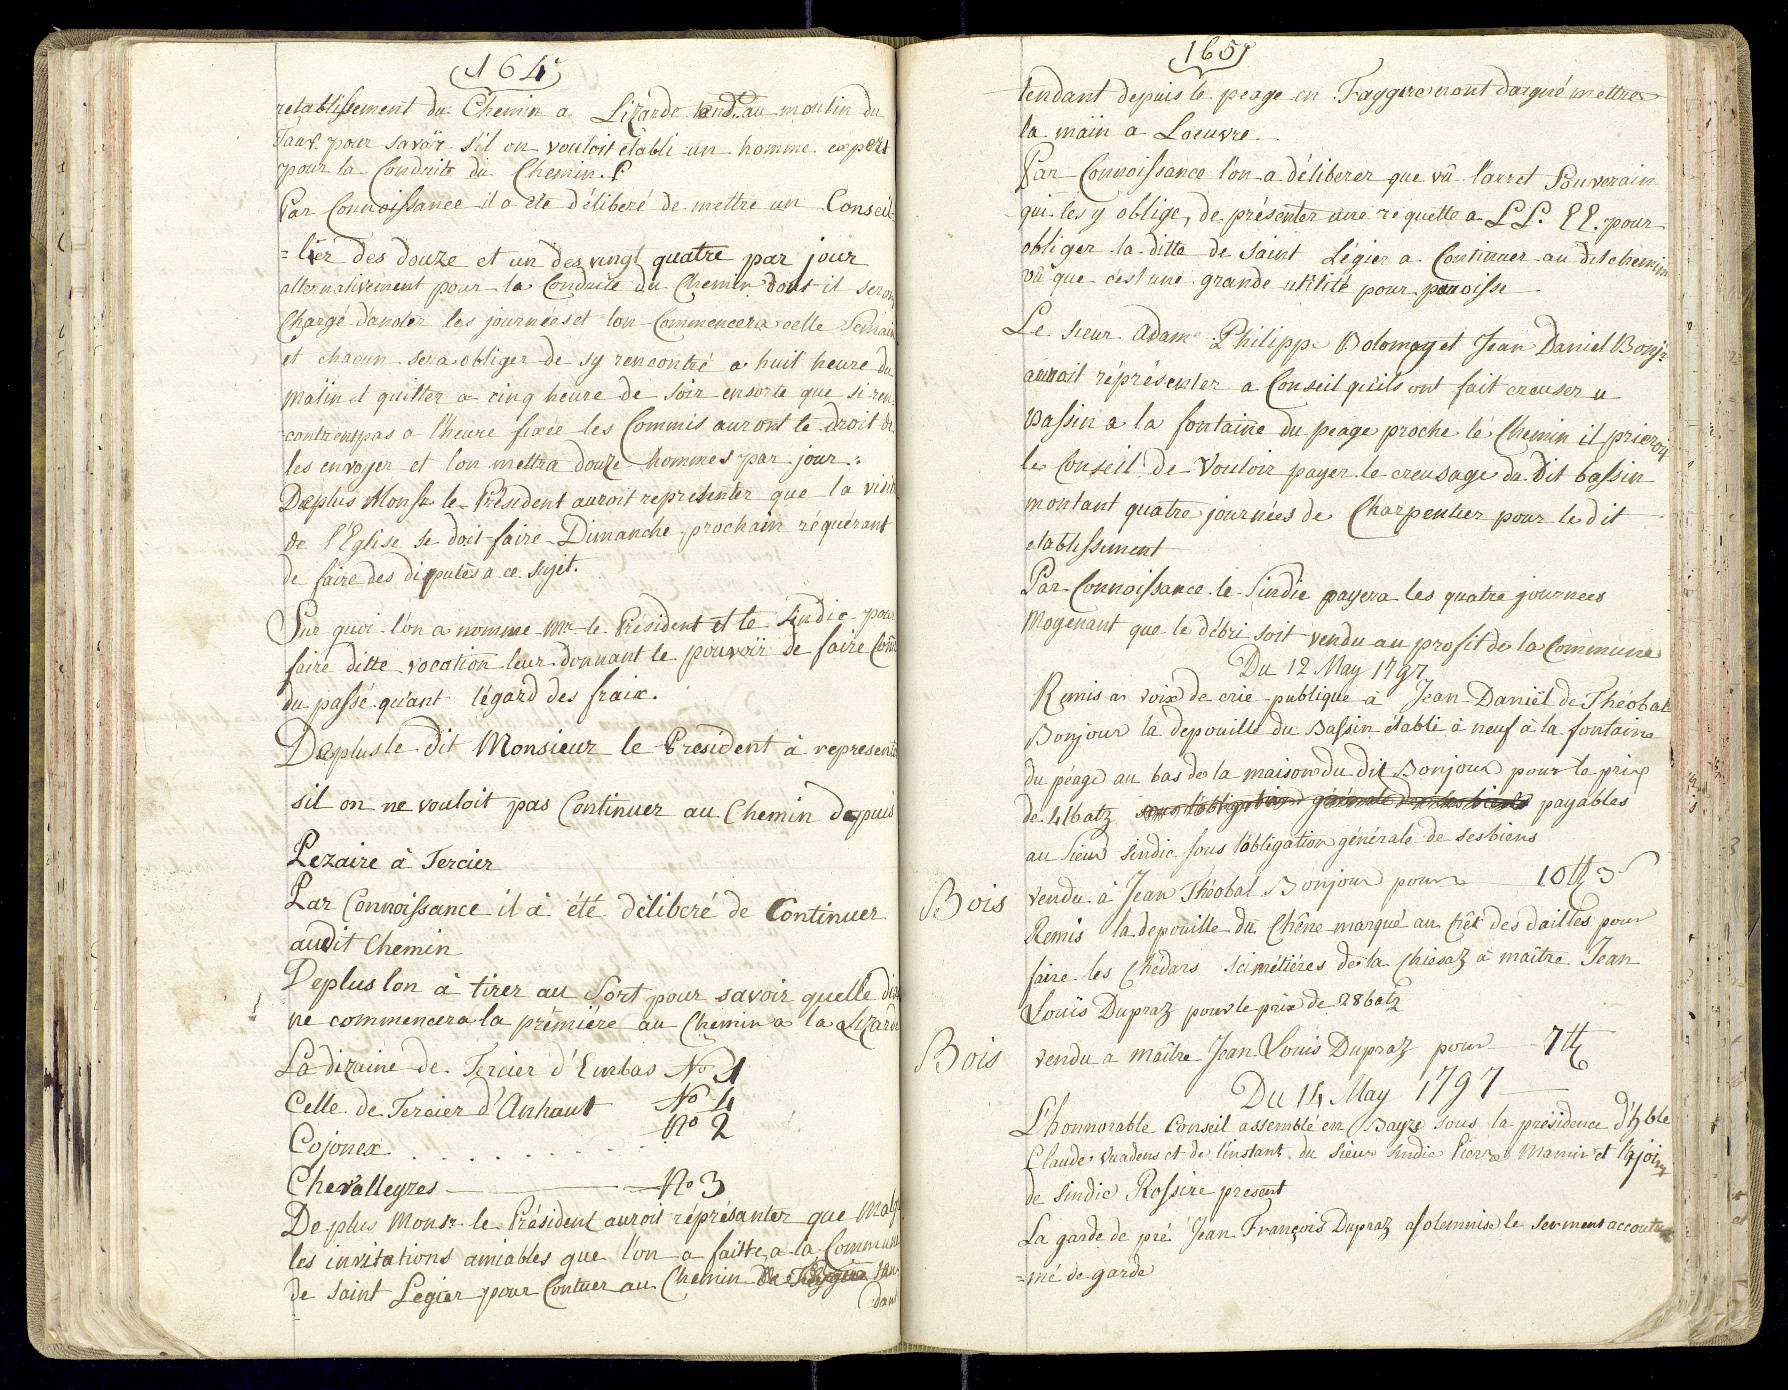 164
retablissement du Chemin a Lizarde tend. au moulin du
pour savoir s'il on vouloit établi un homme expert
pour la Conduite du Chemin.
Par Connoissance il a été délibéré de mettre un Conseil
=lier des douze et un des vingt quatre par jour
alternativement pour la Conduite du Chemin dont il seron
Chargé d'anoter les journées et lon Commencera celle Semain
et chacun sera obliger de sy rencontré a huit heure du
matin et quitter a cinq heure de soir ensorte que si ren
=contrent pas a l'heure fixée les Commis auront le droit de
les envoyer et l'on mettra douze hommes par jour.
Deplus Monsr le Président auroit representer que la visite
de l'Eglise se doit faire Dimanche prochain réquérant
de faire des disputes a ce sujet.
Sur quoi l'on a nommé Mr le President et le Sindic pour
faire ditte vocation leur donnant le pouvoir de faire Com
du passé qu'ant l'égard des fraix.
Deplus le dit Monsieur le President à represente
sil on ne vouloit pas Continuer au Chemin depuis
Lezaire à Tercier
Par Connoissance il à été délibéré de Continuer
audit Chemin
Deplus lon à tirer au Sort pour savoir quelle dizai
ne commencera la prémiére au Chemin a la Lizarde
La dizaine de Tercier d'Embas No 1
Celle de Tercier d'Anhaut No 4
Cojonex . . . . . . . . No 2
Chevalleyres No 3
De plus Monsr le Président auroit réprésanter que Malgr
les invitations amiables que l'on a faitte a la Commune
de Saint Legier pour Contuer au Chemin de Fayguire tan
dans
165
tendant depuis le peage en Fayguire nont daigné mettre
la main a Loeuvre
Par Connoissance l'on a déliberer que vû l'arret Souverain
qui les y oblige, de présenter une requette a LL. EE. pour
obliger la ditte de Saint Légier a Continuer au dit chemin
vû que cest une grande utilité pour paroisse
Le sieur Adam Philippe Dolomay et Jean Daniel Bonjr
auroit réprésenter a Conseil qu'ils ont fait creuser u
Bassin a la fontaine du peage proche le Chemin il prieroi
le Conseil de Vouloir payer le creusage du Dit bassin
montant quatre journées de Charpentier pour le dit
etablissement
Par Connoissance le Sindic payera les quatre journees
Moyenant que le débri soit vendu au profit de la Commune
Du 12 May 1797
Remis a voix de crie publique à Jean Daniël de Théobal
Bonjour la depouille du Bassin établi à neuf à la fontaine
du péage au bas de la maison du dit Bonjour pour le prix
de 41 batz sous l'obligation générale de ses biens payables
au Sieur Sindic sous l'obligation générale de ses biens
Bois vendu à Jean Théobal Bonjour pour 10 tt 3 s
Remis la depouille du Chêne marqué au Crêt des dailles pour
faire les Chédars scimétiéres de la Chiesaz à maître Jean
Louis Dupraz pour le prix de 28 batz
Bois vendu a maître Jean Louis Dupraz pour 7 tt
Du 14 May 1797
L'honnorable Conseil assemblé en Bayre sous la présidence d'hble
Claude Vuadens et de l'instant du Sieur Sindic Pierre Mamin et l'ajoint
de Sindic Rossire present
La garde de pré Jean François Dupraz a solemnisé le serment accoutu
=mé de garde